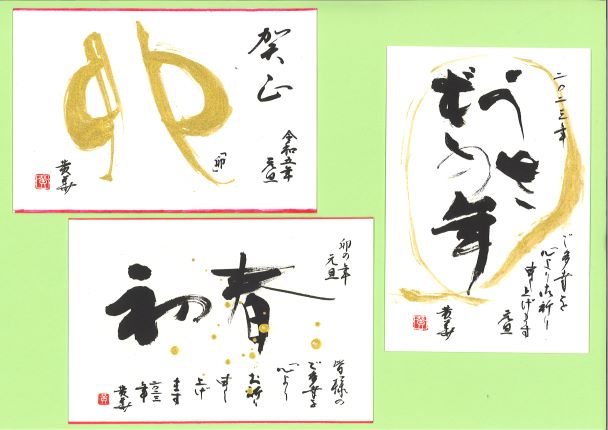 賀正
令和五年
元旦
「卯」
卯
二〇二三年
うさ
ぎの年
ご多幸を
心よりお祈り
申し上げます
元旦
卯の年
元旦
初春
皆様の
ご多幸を
心より
お祈り
申し
上げ
ます
二〇二三
年